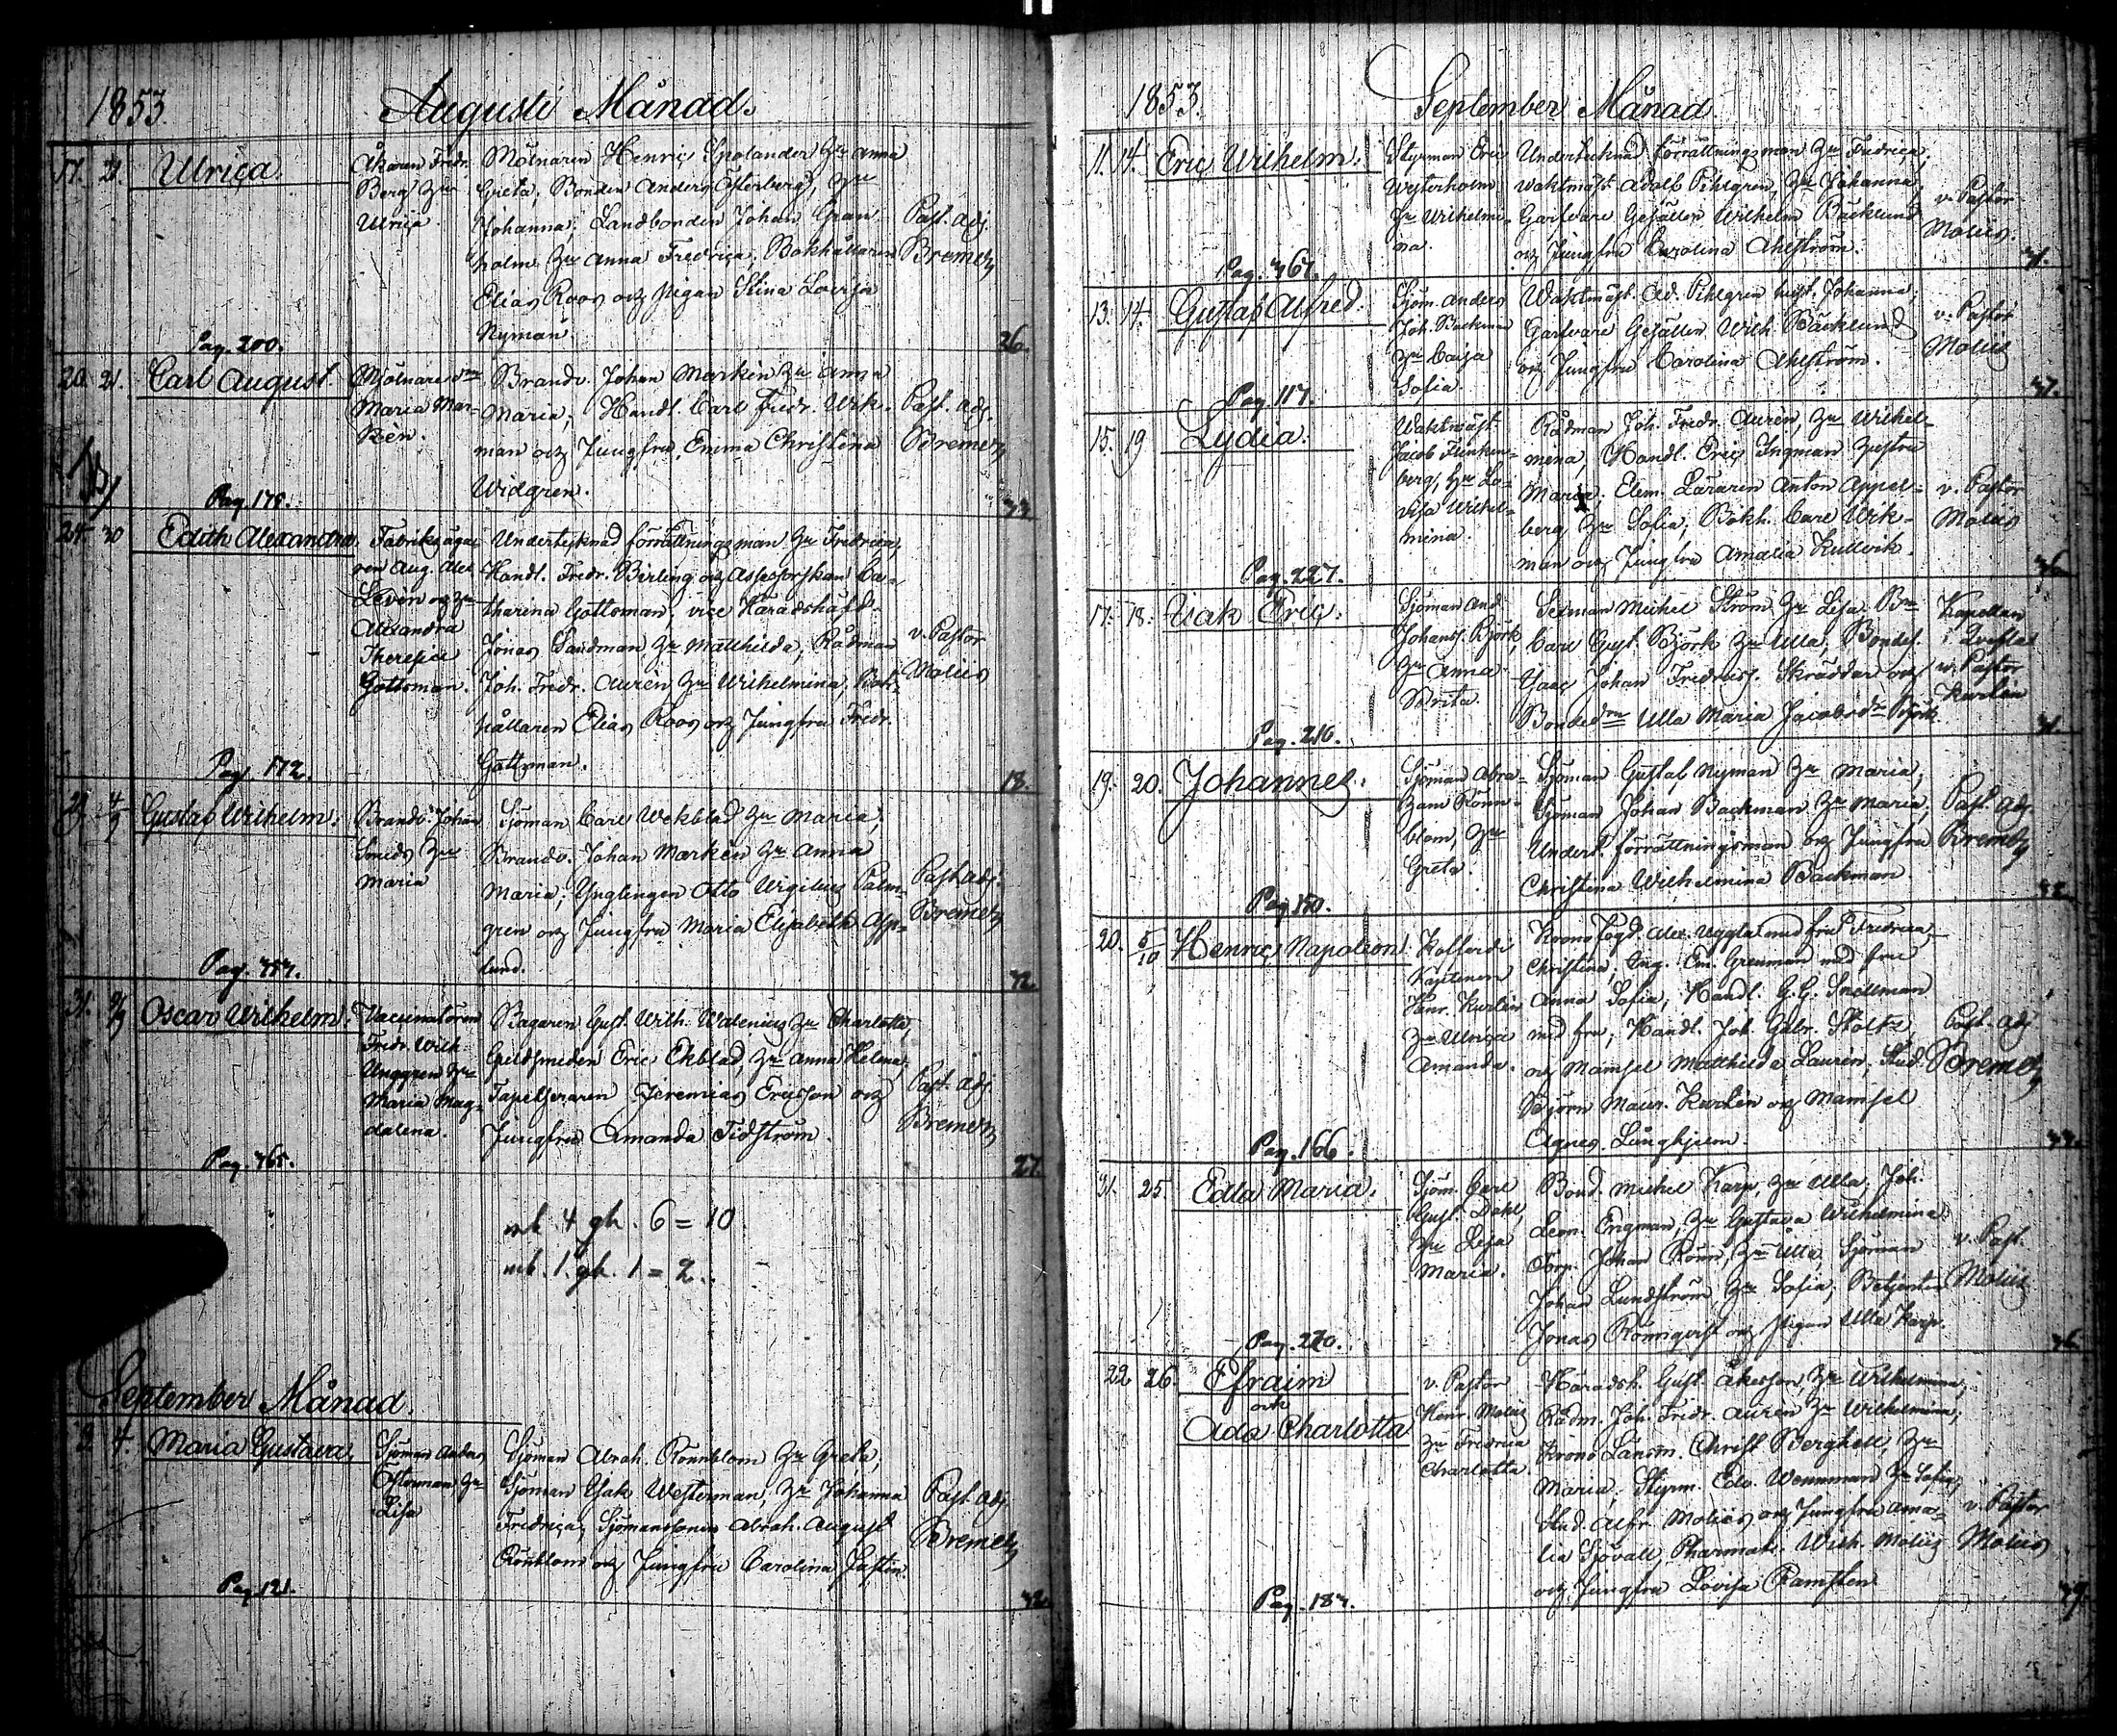 1853
Augusti Månad.
17. 21. Ulrica.
Åkaren Fredr.
Berg Hu
Ulrica.
Mölnaren Henric Spolander Hu Anna
Greta, Bonden Anders Österberg, Hu
Johanna; Landbonden Johan Gran
holm Hu Anna Fredrica; Bokhållaren
Elias Roos och pigan Stina Lovisa
Nyman.
Past. adj.
Bremer
Pag. 200.
36.
20. 21. Carl August.
Mjölnare
Maria Mar-
kén.
Brandv. Johan Markén Hu Anna
Maria; Handl. Carl Fredr. Wik-
man och Jungfru Emma Christina
Widgren.
Past. adj.
Bremer
Pag. 178.
24. 30 Edith Alexandra
Fabriksäga
ren Aug. Alex
Levön och Hu
Alexandra
Theresia
Gottsman.
Undertecknad förrättningsman Hu Fredrica,
Handl. Fredr. Birling och Assessorskan Ca-
tharina Gottsman; vice Häradshöfd.
Jonas Sandman, Hu Matthilda, Rådman
Joh. Fredr. Aurén Hu Wilhelmina, Bok-
hållaren Elias Roos och Jungfru Fredr.
Gottsman.
v. Pastor
Moliis
Pag. 172.
18.
4/9 Gustaf Wilhelm.
Brandv. Johan
Smeds Hu
Maria
Sjöman Carl Wekblad Hu Maria,
Brandv. Johan Markén Hu Anna
Maria; Ynglingen Otto Wigilius Palm-
gren och Jungfru Maria Elisabeth Asp-
lund.
Past. adj.
Bremer
31. Oscar Wilhelm.
Vaccinatören
Fredr. Wilh.
Unggren Hu
Maria Mag-
dalena.
Bagaren Gust. Wilh. Walenius Hu Charlotta,
Guldsmeden Eric Ekblad, Hu Anna Helena,
Tapetseraren Jeremias Ericsson och
Jungfru Amanda Tidström.
Past. adj.
Bremer
27.
mk. 4 gk. 6 = 10
mk. 1. gk. 1 = 2.
September Månad.
4. Maria Gustava,
Sjöman Anders
Österman Hu
Lisa
Sjöman Abrah. Rönnblom Hu Greta,
Sjöman Isak Westerman, Hu Johanna
Fredrica, Sjömanssonen Abrah. August
Rönblom och Jungfru Carolina Justin.
Past. adj.
Bremer
Pag. 121.
32.
1853.
September Månad
11. 14. Eric Wilhelm.
Styrman Eric
Westerholm
Hu Wilhelmi-
na.
Undertecknad förrättningsman Hu Fredrica,
Waktmäst. Adolf Pihlgren, Hu Johanna,
Garfvare Gesällen Wilhelm Bäcklund
och Jungfru Carolina Ahlström.
v. Pastor
Molis.
13. 14. Gustaf Alfred.
Sjöm. Anders
Joh. Backman
Hu Caisa
Sofia
Waktmäst. Ad. Pihlgren hust. Johanna,
Garfvare Gesällen Wilh. Bäcklund
och Jungfru Carolina Ahlström.
v. Pastor
Molis
Pag. 117.
15. 19 Lydia.
Waktmäst.
Jacob Finken-
berg, Hu Lo-
visa Wilhel-
mina.
Rådman Joh. Fredr. Aurén, Hu Wilhel-
mina, Handl. Eric Ingman hustru
Maria; Elem. Läraren Anton Appel-
berg Hu Sofia; Bokh. Carl Wik-
man och Jungfru Amalia Kullvik.
v. Pastor
Molis
Pag. 227.
36.
17. 18. Isak Eric.
Sjöman And.
Johans. Björk,
Hu Anna
Brita.
Sexman Michel Ström Hu Lisa. Bn
Carl Gust. Björk Hu Ulla; Bondes.
Isac Johan Fredriss. Skräddar och
Bondedn Ulla Maria Jacobsdr Björk
Kapellan
v. Pastor
Kurtén
Pag. 216.
19. 20. Johannes.
Sjöman Abra-
ham Rönn-
blom, Hu
Greta.
Sjöman Gustaf Nyman Hu Maria,
Sjöman Johan Backman Hu Maria,
Undert. förrättningsman och Jungfru
Christina Wilhelmina Backman
Past. adj.
Bremer
20. 5/10 Henric Napoleon.
Kofferdi
Kaptenen
Henr. Kurtén
Hu Ulrica
Amanda.
Kronofogd. Alex. Uggla med fru Fredrica
Christina; Ing. Em. Grenman med fru
Anna Sofia; Handl. G.G. Snellman
med fru; Handl. Joh. Gabr. Stolts
och Mamsel Matthilda Laurin; Stud.
Björn Maur. Kurtén och Mamsel
Agnes Ljunghjelm.
Past. adj
Bremer
Pag. 166.
21. 25. Edla Maria.
Sjöm. Carl
Gust. Dahl,
Hu Lisa
Maria.
Bond. Michel Karp, Hu Ulla, Joh.
Leon. Engman, Hu Gustava Wilhelmina
Torp. Johan Rönn, Hu Ulla, Sjöman
Johan Lundström Hu Sofia, Betjenten
Jonas Rönnqvist och pigan Ulla Karp.
v. Past.
Molis
22 26. Efraim
och
Ada Charlotta
v. Pastor
Henr. Molis
Hu Fredrica
Charlotta
Häradsh. Gust. Åkesson, Hu Wilhelmina,
Rådm. Joh. Fredr. Aurén Hu Wilhelmina,
Krono Länsm. Christ Berghell, Hu
Maria. Styrm. Edv. Wennman Hu Sofia,
Stud. Alfr. Moliis och Jungfru Ama-
lia Sjövall, Pharmak. Wilh. Moliis
och Jungfru Lovisa Ramsten
v. Pastor
Moliis
Pag. 187.